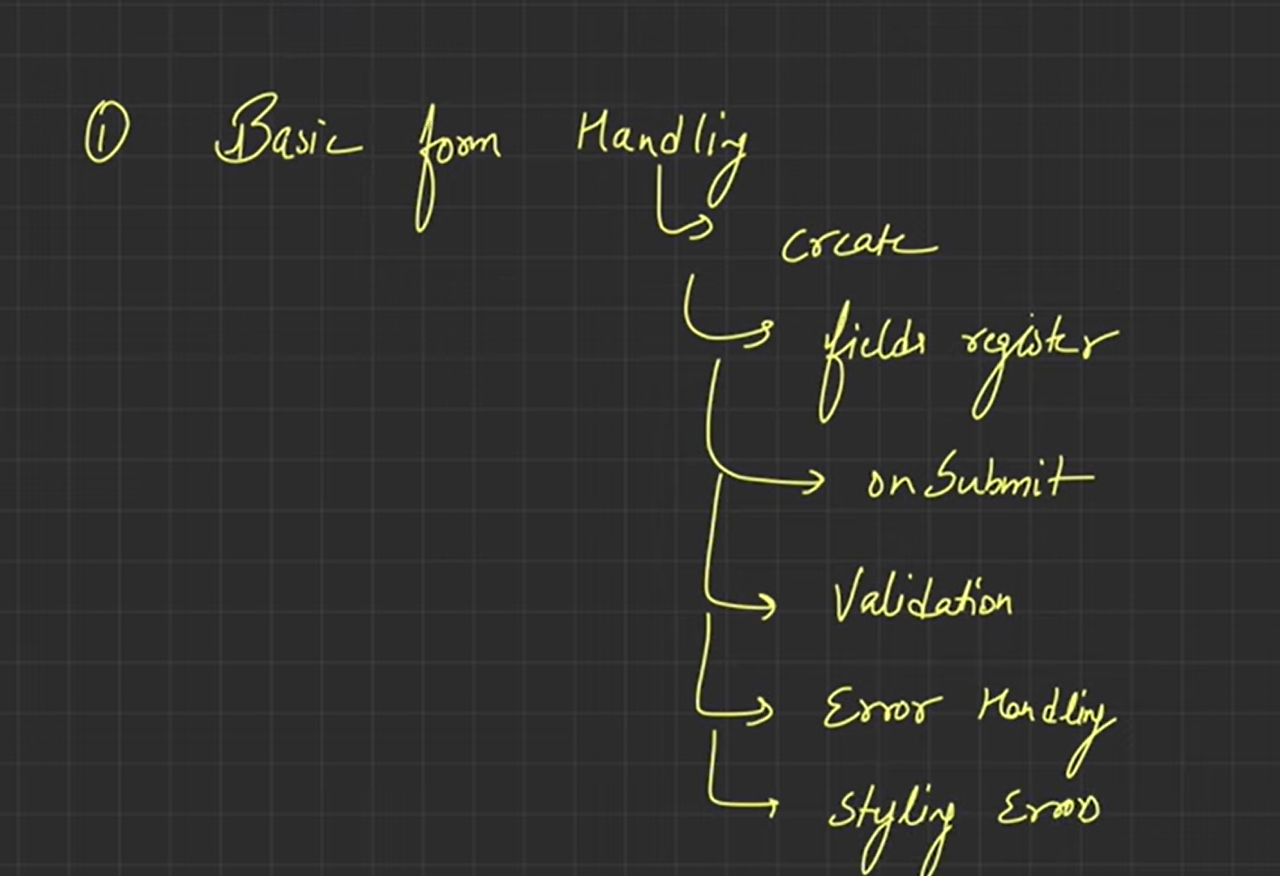 ① Basic form Handling
create
fields register
onSubmit
Validation
Error Handling
Styling Errors